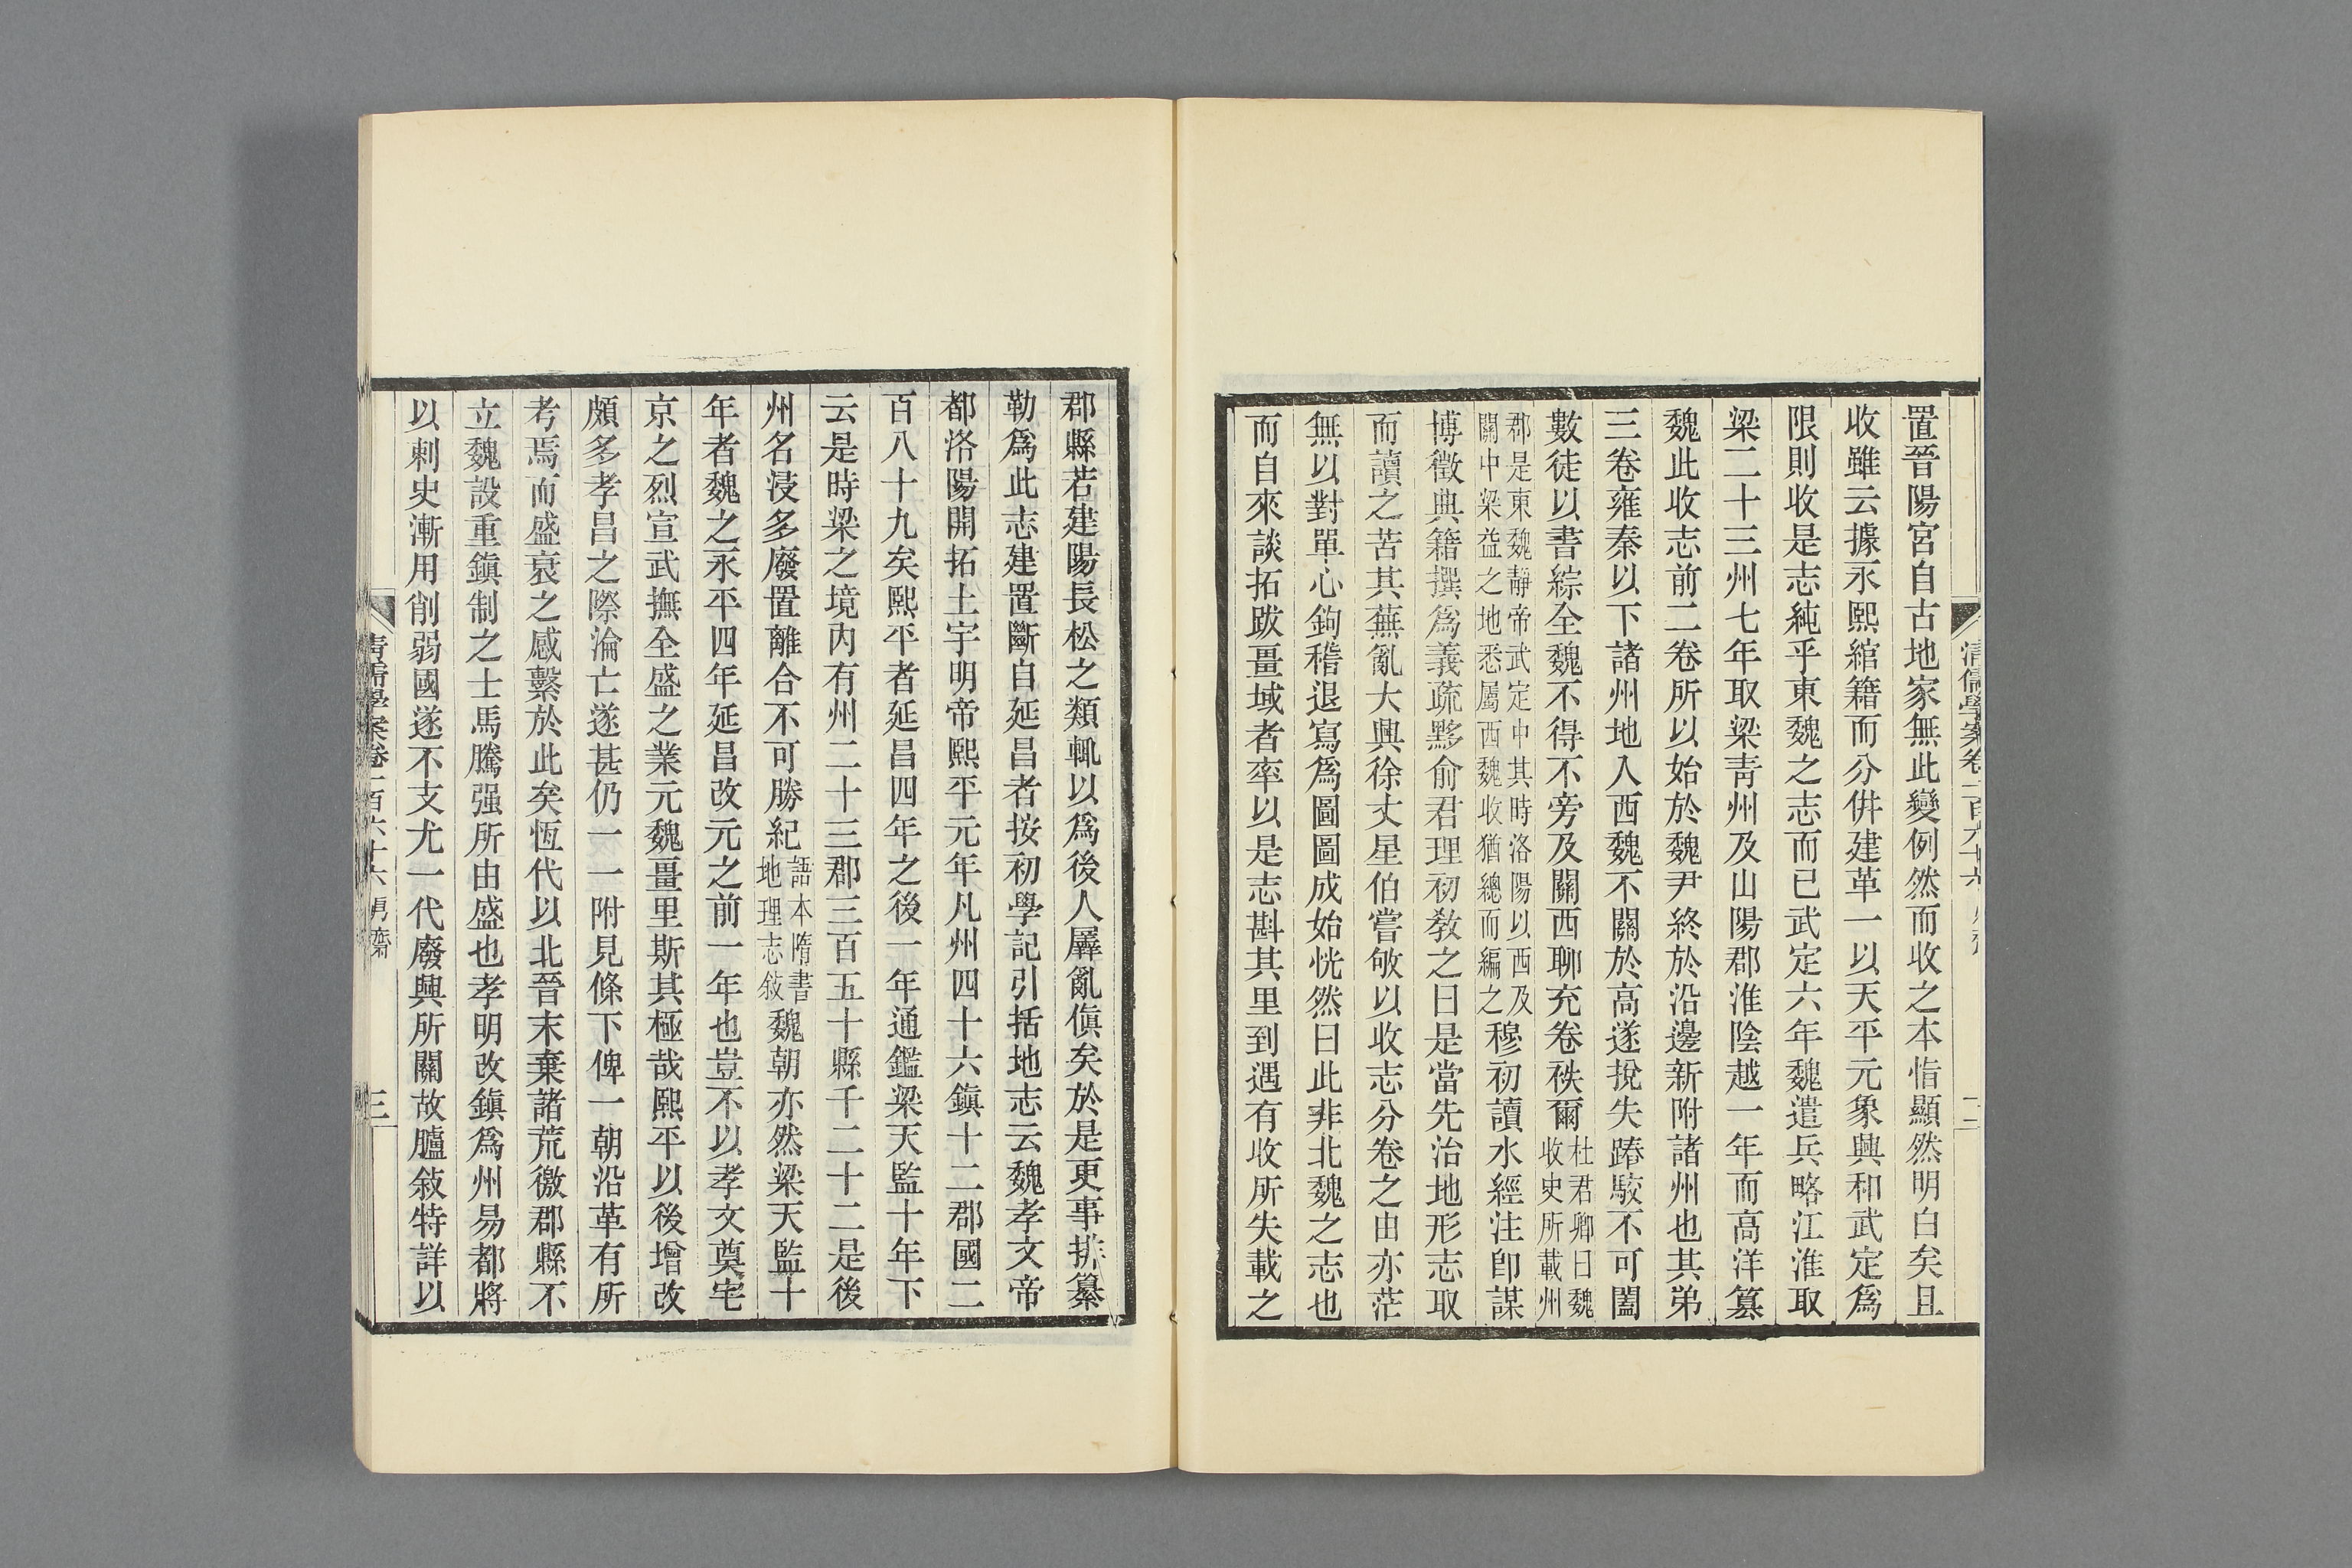 置晉陽宮自古地家無此變例然而收之本恉顯然明白矣且
收雖云據永熙綰籍而分倂建革一以天平元象興和武定爲
限則收是志純乎東魏之志而已武定六年魏遣兵略江淮取
梁二十三州七年取梁靑州及山陽郡淮陰越一年而高洋篡
魏此收志前二卷所以始於魏尹終於沿邊新附諸州也其弟
三卷雍秦以下諸州地入西魏不關於高遂挩失踳駮不可闔
數徒以書綜全魏不得不旁及關西聊充卷秩爾杜君卿曰魏收史所載州
郡是東魏靜帝武定中其時洛陽以西及關中梁益之地悉屬西魏收猶總而編之穆初讀水經注卽謀
博徵典籍撰爲義疏黟俞君理初敎之曰是當先治地形志取
而讀之苦其蕪亂大興徐丈星伯嘗敂以收志分卷之由亦茫
無以對單心鉤稽退寫爲圖圖成始恍然曰此非北魏之志也
而自來談拓跋畺域者率以是志斟其里到遇有收所失載之
郡縣若建陽長松之類輒以爲後人羼亂傎矣於是更事排纂
勒爲此志建置斷自延昌者按初學記引括地志云魏孝文帝
都洛陽開拓土宇明帝熙平元年凡州四十六鎭十二郡國二
百八十九矣熙平者延昌四年之後一年通鑑梁天監十年下
云是時梁之境內有州二十三郡三百五十縣千二十二是後
州名浸多廢置離合不可勝紀語本隋書地理志敍魏朝亦然梁天監十
年者魏之永平四年延昌改元之前一年也豈不以孝文奠宅
京之烈宣武撫全盛之業元魏畺里斯其極哉熙平以後增改
頗多孝昌之際淪亡遂甚仍一一附見條下俾一朝沿革有所
考焉而盛衰之感繫於此矣恆代以北晉末棄諸荒徼郡縣不
立魏設重鎭制之士馬騰强所由盛也孝明改鎭爲州易都將
以刺史漸用削弱國遂不支尤一代廢興所關故臚敍特詳以
清儒學案卷一百六十六
三